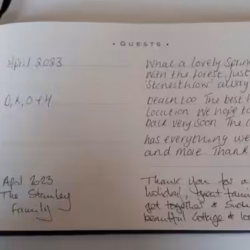 • GUESTS •
April 2023
What a lovely
with the forest just
Stonesthrow away
D, K, O + H
beach too. The best
location. We hope to
back very soon. The
has everything we
and more. Thank
April 2023
The Stanley
Family
Thank you for a
holiday, great family
get together &
beautiful cottage & loc